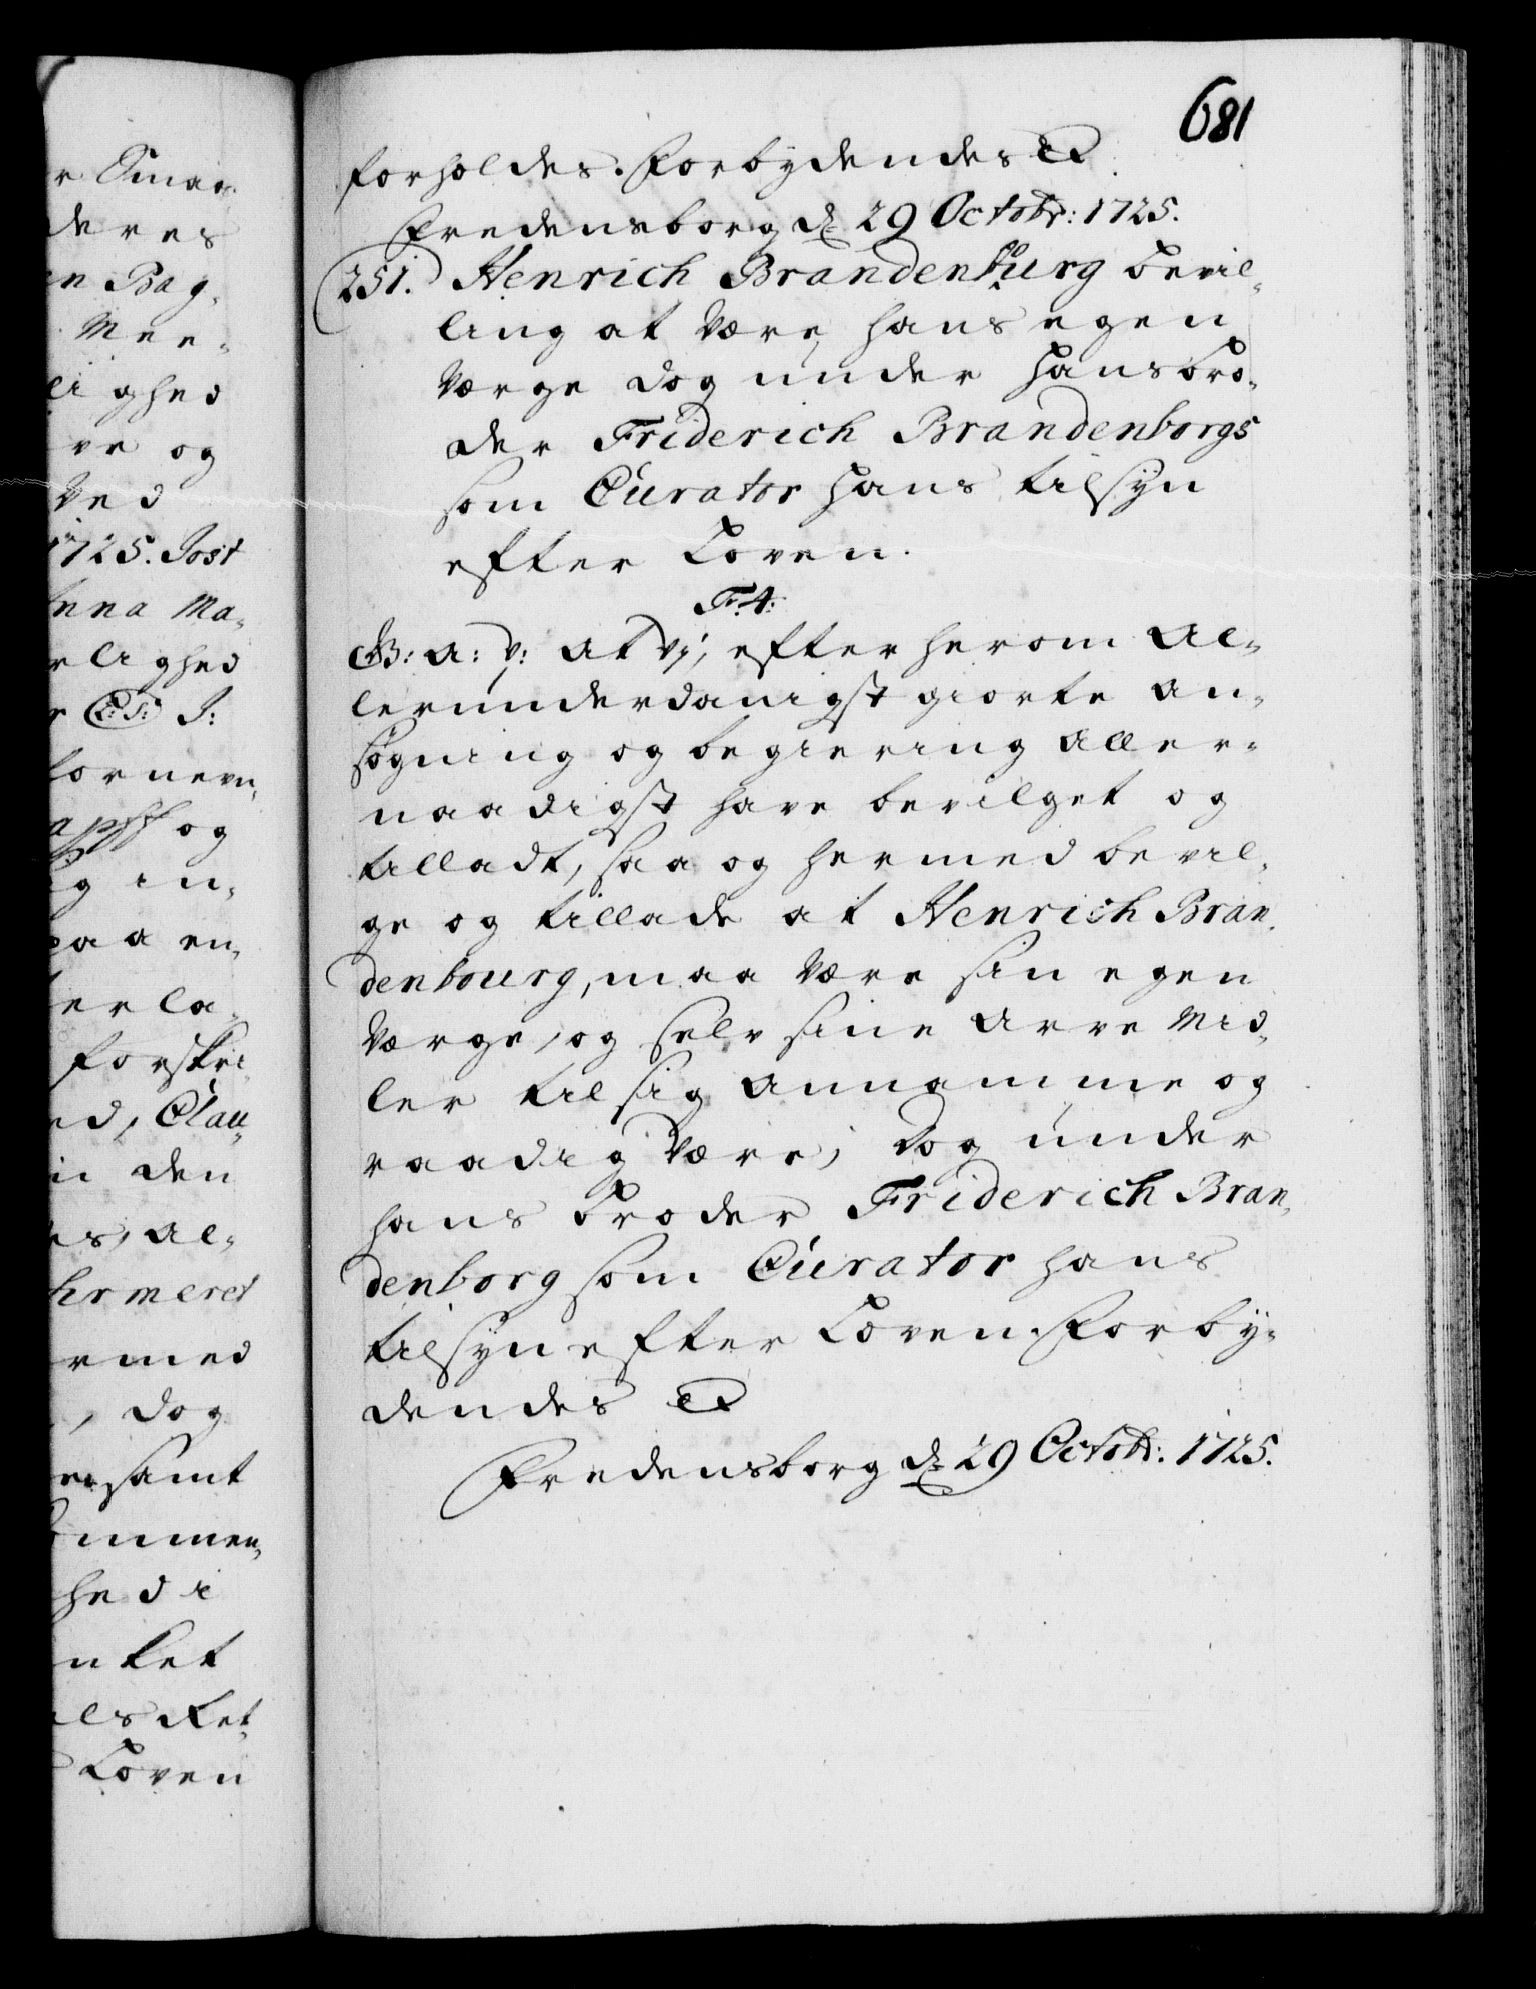 681
forholdes. Forbydendes etc
Fredensborg d. 29 Octobr: 1725.
251. Henrich Brandenbourg bevil-
ling at være hans egen
værge dog under hans bro-
der Friderich Brandenborgs
som Curator hans tilsyn
efter Loven.
F. 4.
G: A: V: At Vj, efter herom al-
lerunderdanigst giorte an-
søgning og begiering aller-
naadigst have bevilget og
tilladt, saa og hermed bevil-
ge og tillade at Henrich Bran-
denbourg, maa være sin egen
værge, og selv sine Arve Mid-
ler til sig annamme og
raadig være, dog under
hans broder Friderich Bran-
denborg som Curator hans
tilsyn efter Loven. Forby-
dendes etc
Fredensborg d. 29 Octobr: 1725.
deres
en Bag-
Mee-
lighed
ve og
Ved
1725. Jost
Anna Ma-
rlighed
fornevn-
og
ig in-
paa en-
forskri-
ed, Clau-
den
es, al-
hrmeret
rmed
, dog
samt
ommen-
hed i
nket
els Ret-
Loven